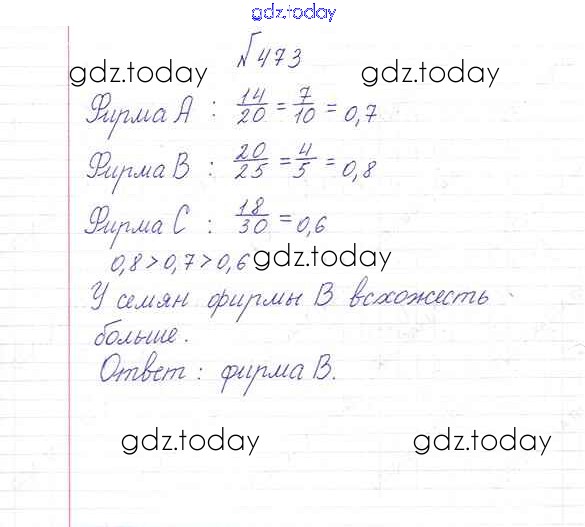 gdz.today
№473
gdz.today gdz.today
Фирма А : 14/20 = 7/10 = 0,7
Фирма В : 20/25 = 4/5 = 0,8
Фирма С : 18/30 = 0,6
0,8 > 0,7 > 0,6 gdz.today
У семян фирмы В всхожесть
больше.
Ответ : фирма В.
gdz.today gdz.today